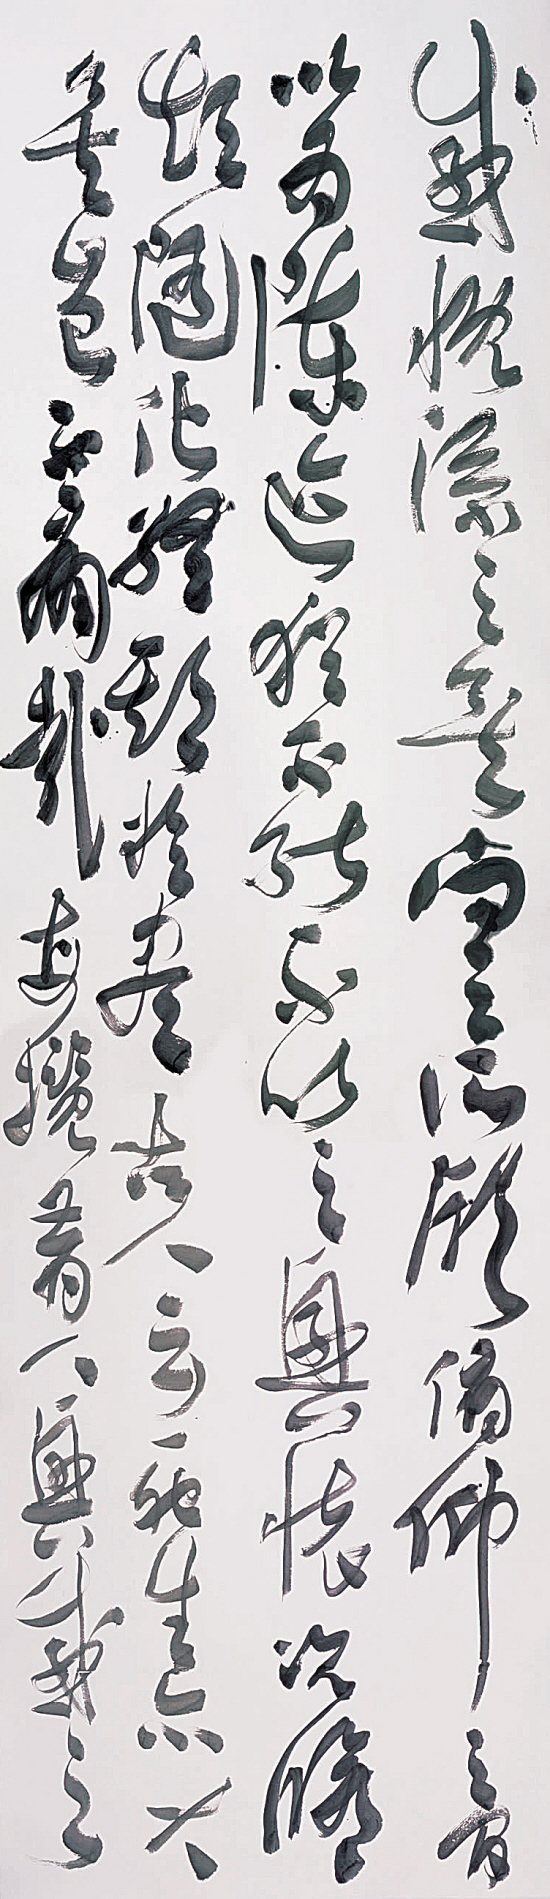 感慨係之矣向之所欣俛仰之間
以為陳迹猶不能不以之興懷況脩
短隨化終期於盡古人云死生亦大
矣豈不痛哉每攬昔人興感之